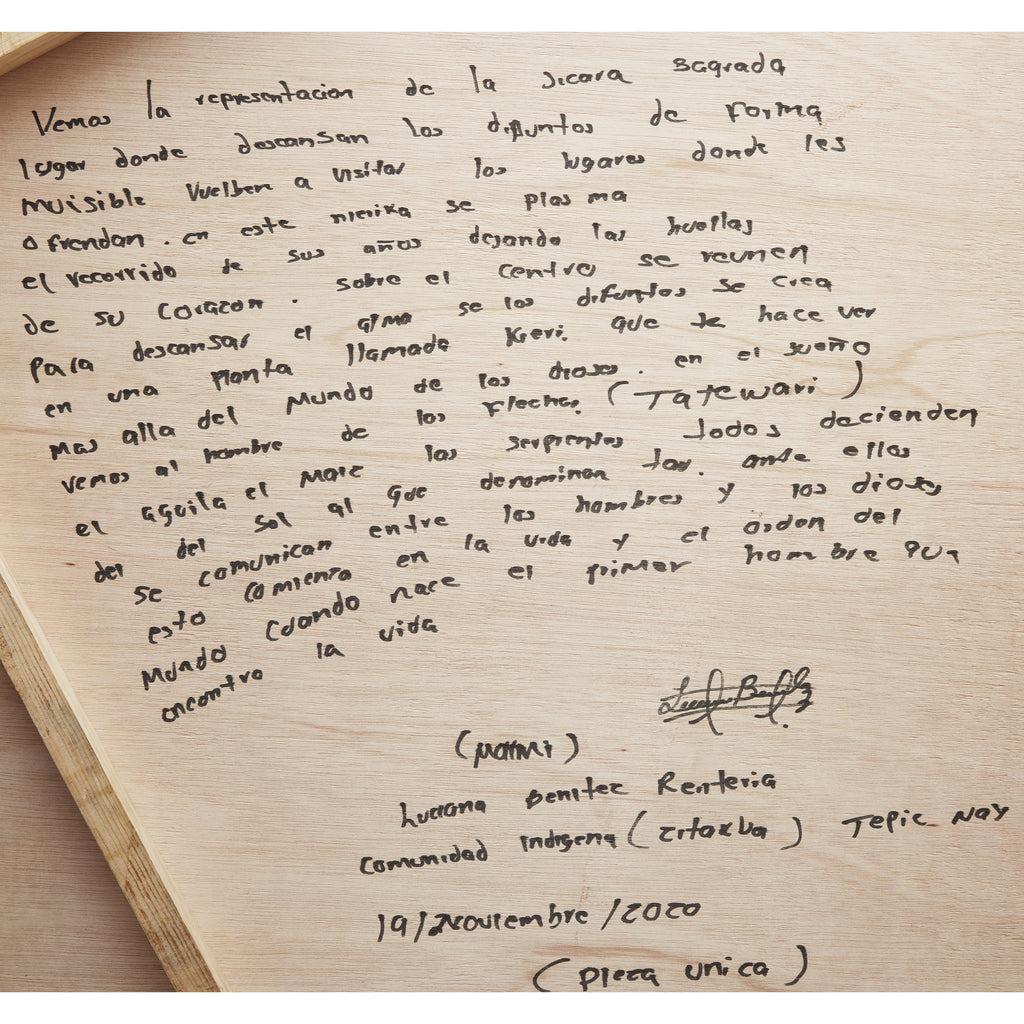 Vemos la representacion de la Jicara sagrada
lugar donde descansan los difuntos de forma
muisible Vuelben a Visitar los lugares donde les
ofrendan. en este nierika se plasma
el recorrido de sus años dejando las huellas
de su corazon. sobre el centro se reunen
para descansar el alma se los difuntos se crea
en una planta llamada Kieri. que se hace ver
mas alla del mundo de los dioses. en el sueño
vemos al hombre de los flechas. (TaTewari)
el aguila el maiz las serpientes todos decienden
del sol al que denominan tau. ante ellas
se comunican entre los hombres y los dioses
esto comienza en la vida y el orden del
mundo cuando nace el primer hombre que
encontro la vida
Luciana Benitez Renteria
Comunidad Indigena Tepic Nay
19/Noviembre/2020
(pieza unica)